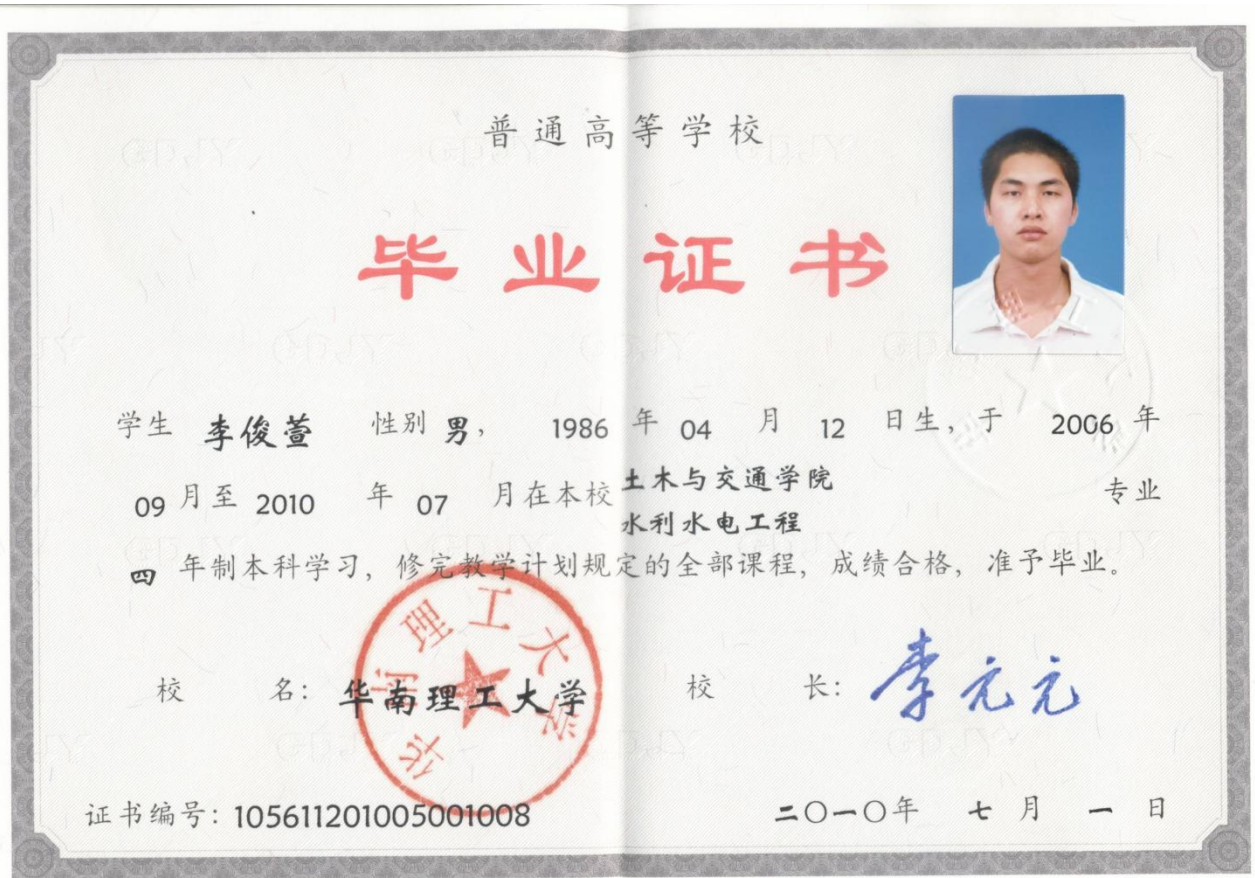 普通高等学校
毕业证书
学生 李俊萱 性别 男， 1986 年 04 月 12 日生，于 2006 年
09 月至 2010 年 07 月在本校 土木与交通学院
水利水电工程 专业
四 年制本科学习，修完教学计划规定的全部课程，成绩合格，准予毕业。
校 名：华南理工大学 校 长：李元元
华南理工大学
证书编号：105611201005001008 二〇一〇年 七 月 一 日